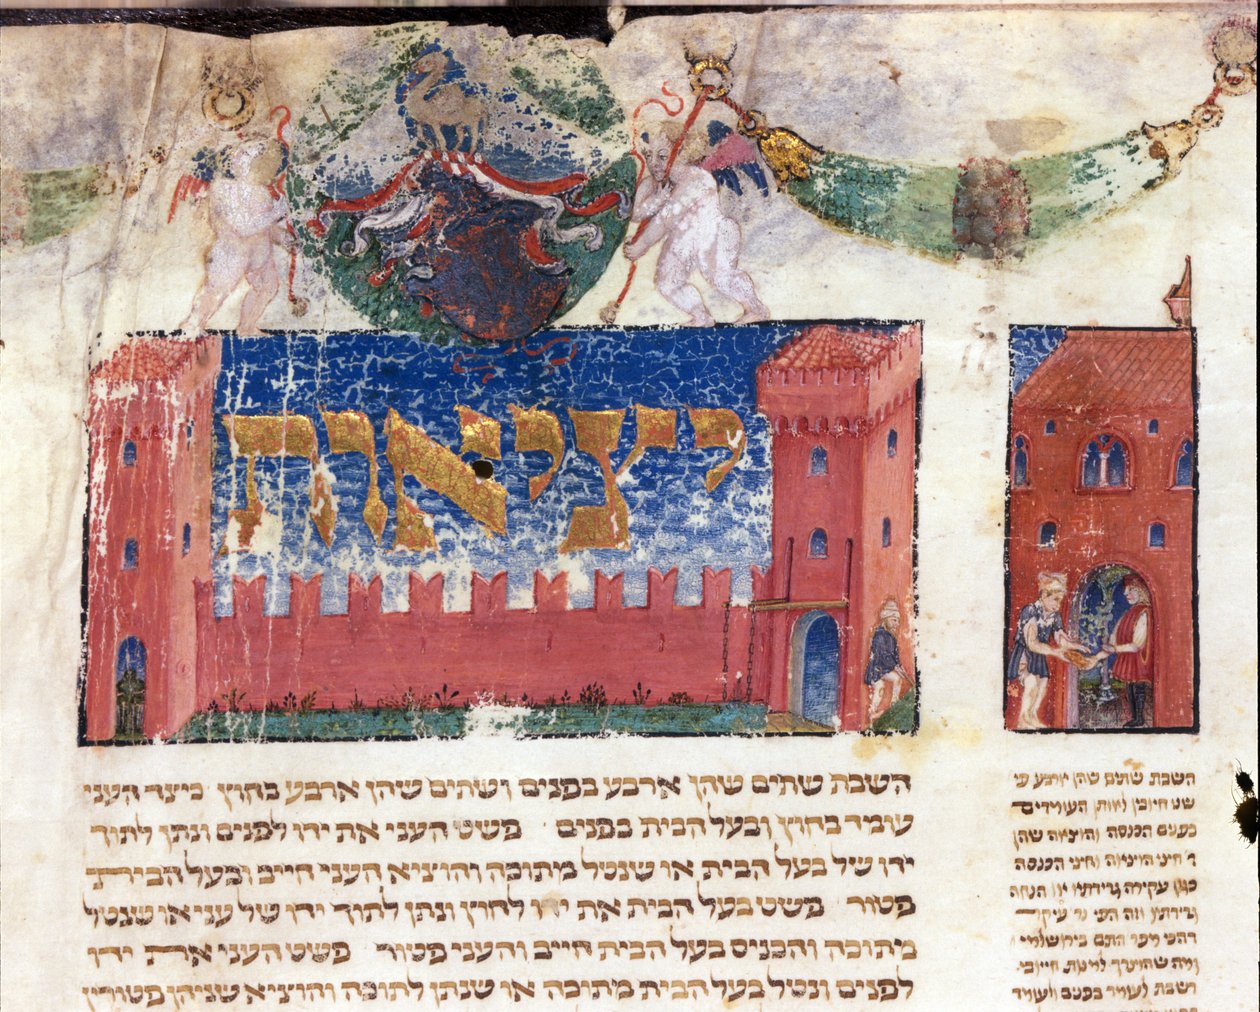 יציאות
השבת שתים שהן ארבע בפנים ושתים שהן ארבע בחוץ כיצד העני
עומד בחוץ ובעל הבית בפנים פשט העני את ידו לפנים ונתן לתוך
ידו של בעל הבית או שנטל מתוכה והוציא העני חייב ובעל הבית
פטור פשט בעל הבית את ידו לחוץ ונתן לתוך ידו של עני או שנטל
מתוכה והכניס בעל הבית חייב והעני פטור פשט העני את ידו
לפנים ונטל בעל הבית מתוכה או שנתן לתוכה והוציא שניהן פטורין
השבת שתים שהן ארבע
חיובין לאותן העומדים
בפנים הכנסה והוצאה שהן
הכנסה
כגון עקירה
התם
רשבת לעומד בפנים ולעומד